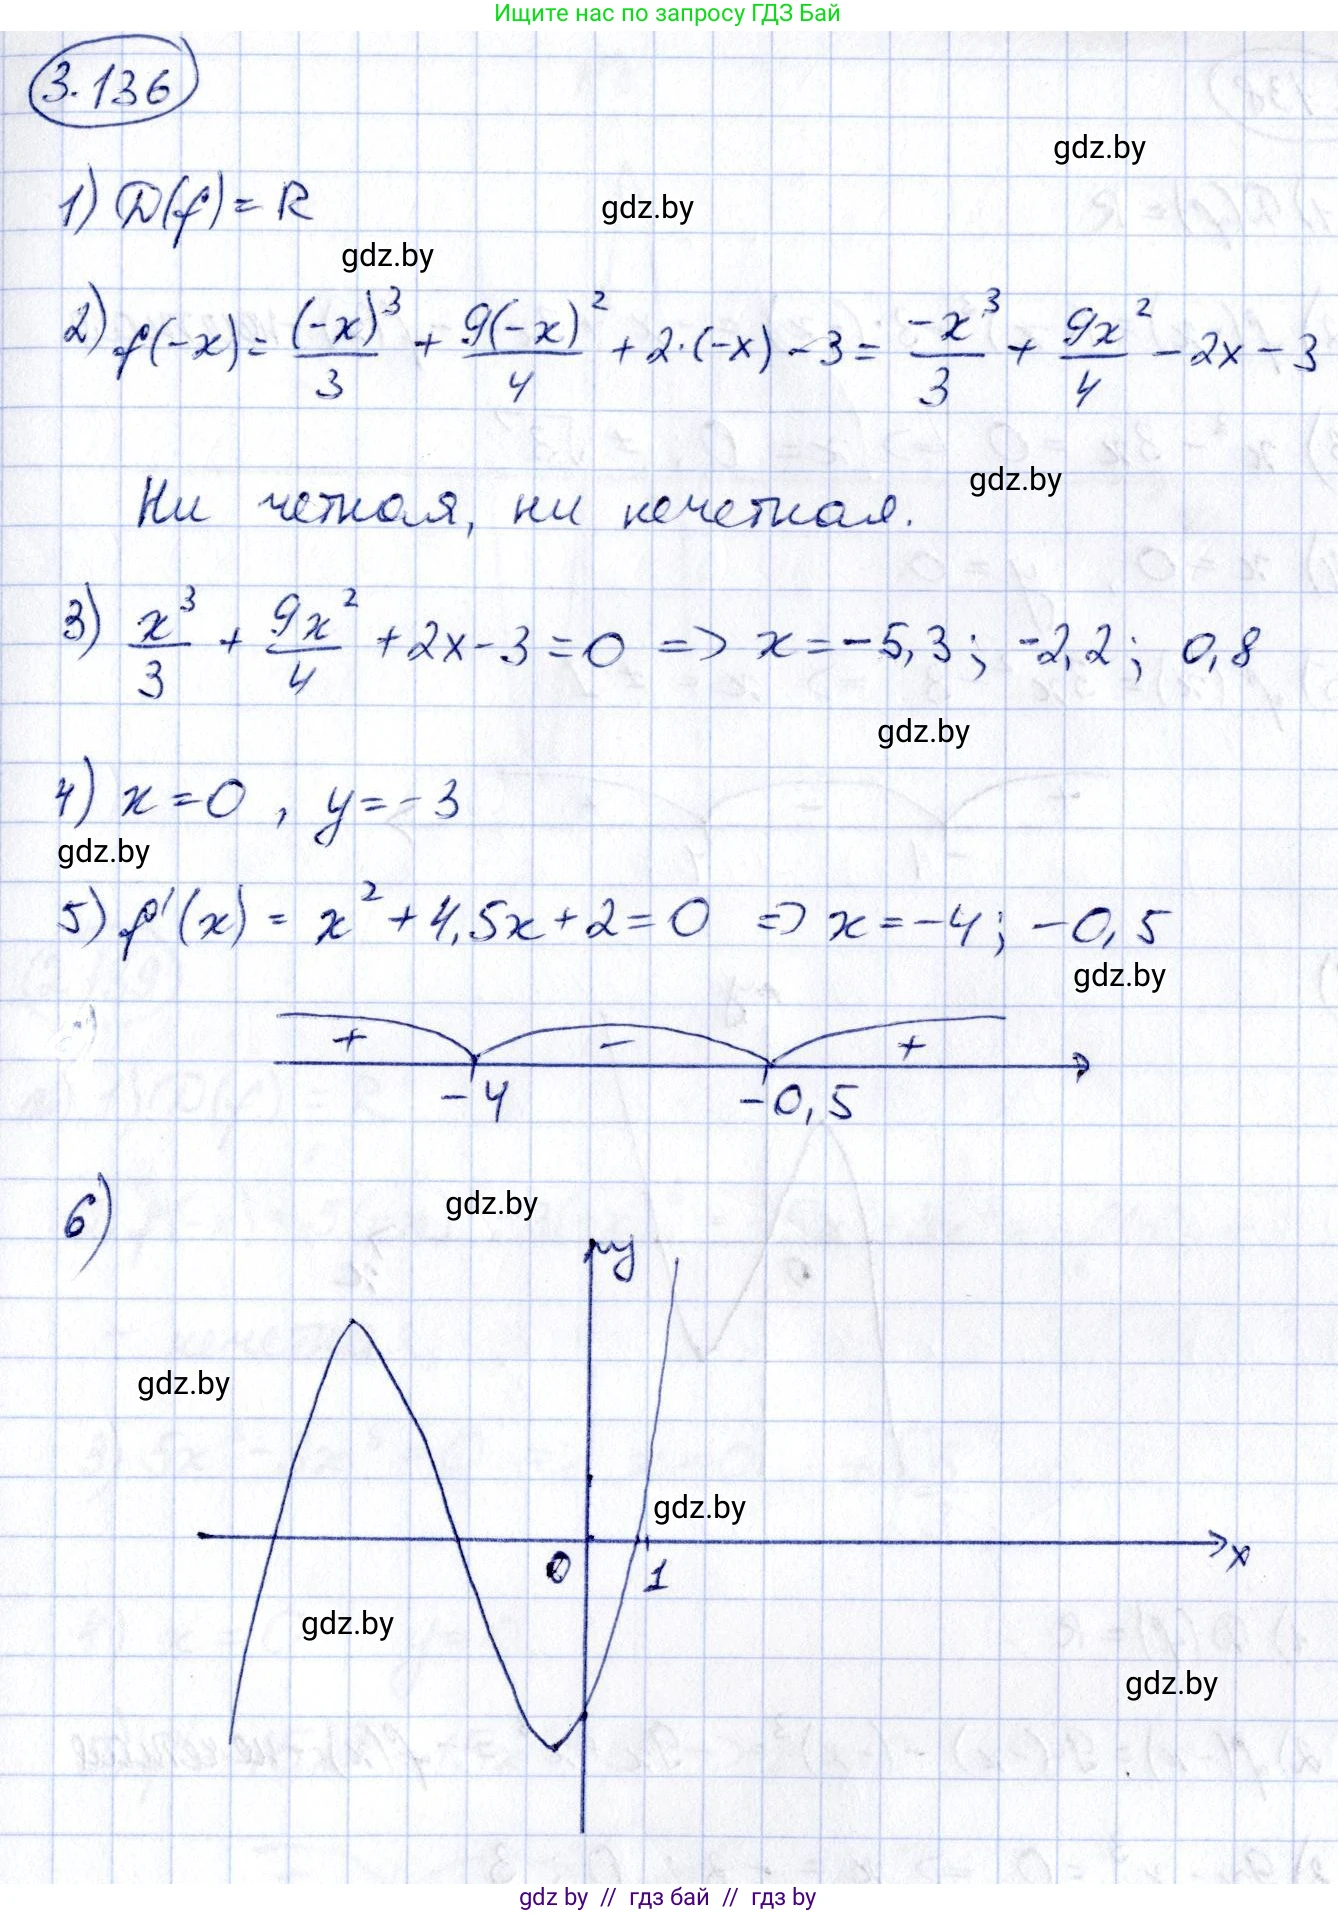 Ищите нас по запросу ГДЗ Бай
3.136
gdz.by
1) D(f) = R
gdz.by
gdz.by
2) f(-x) = (-x)^3/3 + 9(-x)^2/4 + 2·(-x) - 3 = -x^3/3 + 9x^2/4 - 2x - 3
gdz.by
Ни четная, ни нечетная.
3) x^3/3 + 9x^2/4 + 2x - 3 = 0 => x = -5,3; -2,2; 0,8
gdz.by
4) x = 0, y = -3
gdz.by
5) f'(x) = x^2 + 4,5x + 2 = 0 => x = -4; -0,5
gdz.by
+ - +
-4 -0,5
6)
gdz.by
y
gdz.by
gdz.by
0 1 x
gdz.by
gdz.by
gdz by // гдз бай // гдз by